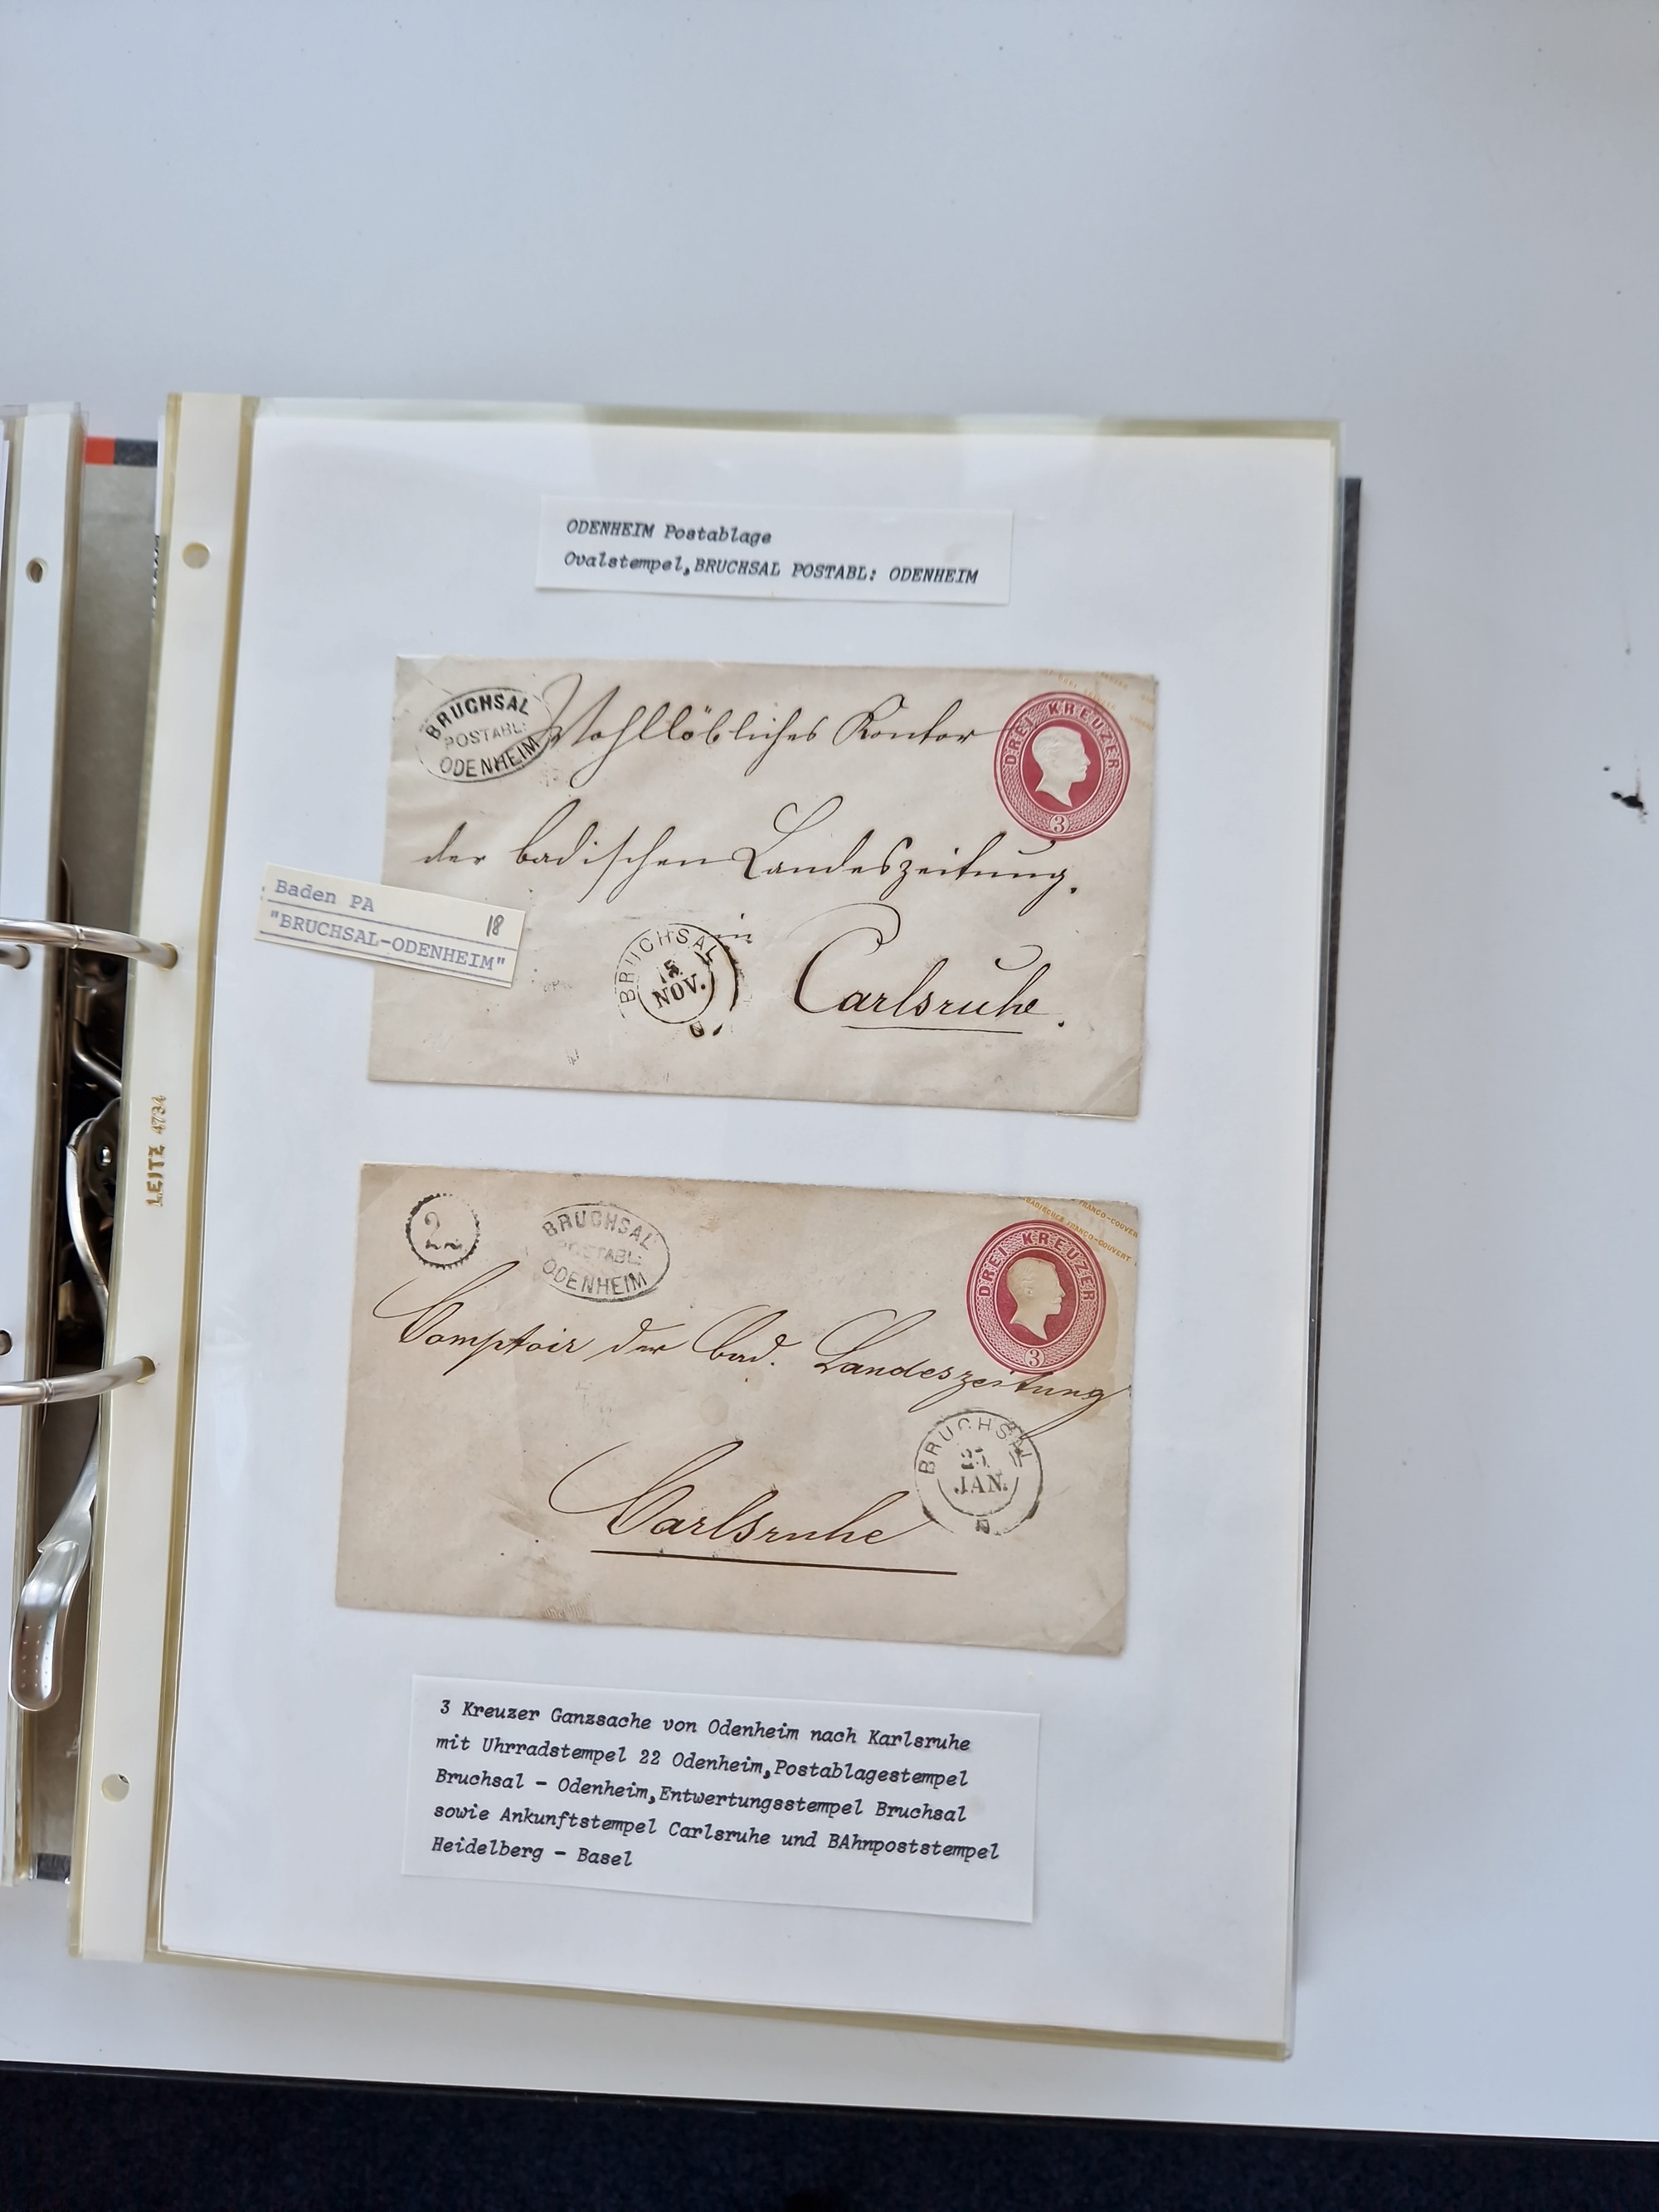 ODENHEIM Postablage
Ovalstempel,BRUCHSAL POSTABL: ODENHEIM
BRUCHSAL
POSTABL:
ODENHEIM
Wohllöbliches Kontor
DREI KREUZER
3
der badischen Landeszeitung.
in
Carlsruhe.
BRUCHSAL
15
NOV.
Baden PA
18
"BRUCHSAL-ODENHEIM"
LEITZ 4734
BRUCHSAL
POSTABL:
ODENHEIM
FRANCO-COUVERT
BADISCHES FRANCO-COUVERT
DREI KREUZER
3
Comptoir der bad. Landeszeitung
BRUCHSAL
JAN.
Carlsruhe
3 Kreuzer Ganzsache von Odenheim nach Karlsruhe
mit Uhrradstempel 22 Odenheim,Postablagestempel
Bruchsal - Odenheim,Entwertungsstempel Bruchsal
sowie Ankunftstempel Carlsruhe und BAhnpoststempel
Heidelberg - Basel